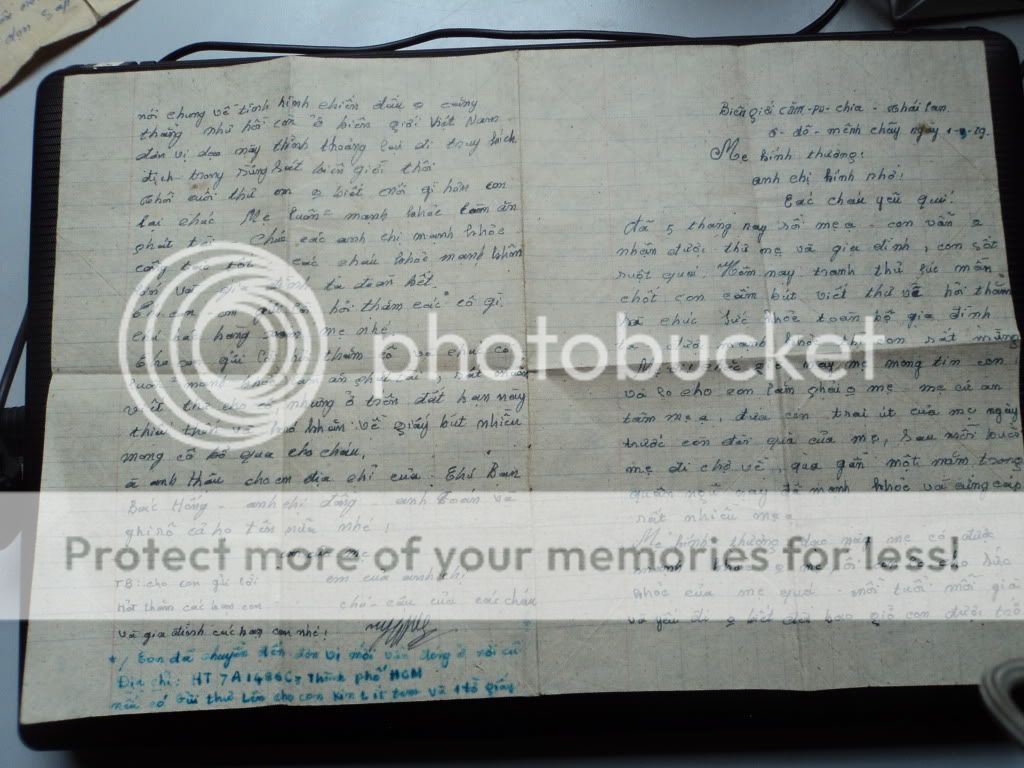 Biên giới Căm-pu-chia - Thái Lan.
ngày 1-9-79.
Mẹ kính thương!
anh chị kính nhớ!
Các cháu yêu quí!
đã 5 tháng nay rồi mẹ ạ - con vẫn o
nhận được thư mẹ và gia đình, con sốt
ruột quá. Hôm nay tranh thủ lúc mãn
chốt con cầm bút viết thư về hỏi thăm
và chúc sức khỏe toàn bộ gia đình
ta được mạnh khỏe con rất mừng
mẹ mong tin con
và lo cho con lắm phải o mẹ mẹ cứ an
tâm mẹ ạ, đứa con trai út của mẹ ngày
trước còn đòi quà của mẹ, sau mỗi buổi
mẹ đi chợ về, qua gần một năm trong
quân ngũ nay đã mạnh khỏe và cứng cáp
rất nhiều mẹ ạ
Mẹ kính thương dạo này mẹ có được
mạnh khỏe o mẹ lo cho sức
khỏe của mẹ quá mỗi tuổi mỗi già
và yếu đi o biết đến bao giờ con được trở
nói chung về tình hình chiến đấu o căng
thẳng như hồi con ở biên giới Việt Nam
đơn vị dạo này thỉnh thoảng lại đi truy kích
địch trong rừng sát biên giới thôi
thôi cuối thư em o biết nói gì hơn con
lại chúc Mẹ luôn = mạnh khỏe làm ăn
phát tài. Chúc các anh chị mạnh khỏe
công tác tốt các cháu khỏe mạnh khôn
lớn và gia đình ta đoàn kết.
con gửi lời hỏi thăm các cô gì
chú bác hàng xóm mẹ nhé.
Cho con gửi lời hỏi thăm cô và chúc cô
luôn = mạnh khỏe làm ăn phát tài, rất muốn
viết thư cho cô, nhưng ở trên đất bạn này
thiếu thốn và khó khăn về giấy bút nhiều
mong cô bỏ qua cho cháu,
à anh Thâu cho em địa chỉ của: Chú Ban
Bác Hồng - anh chị đông - anh Toan và
ghi rõ cả họ tên nữa nhé!
con của mẹ
TB: cho con gửi lời em của anh chị
Hỏi thăm các bạn con chú - cậu của các cháu
và gia đình các bạn con nhé!
*/ Con đã chuyển đến đơn vị mới vẫn đóng ở nơi cũ
Địa chỉ: HT 7A1486C7 Thành phố HCM
nếu có gửi thư lên cho con xin 1 ít tem và 1 tờ giấy
photobucket
Protect more of your memories for less!